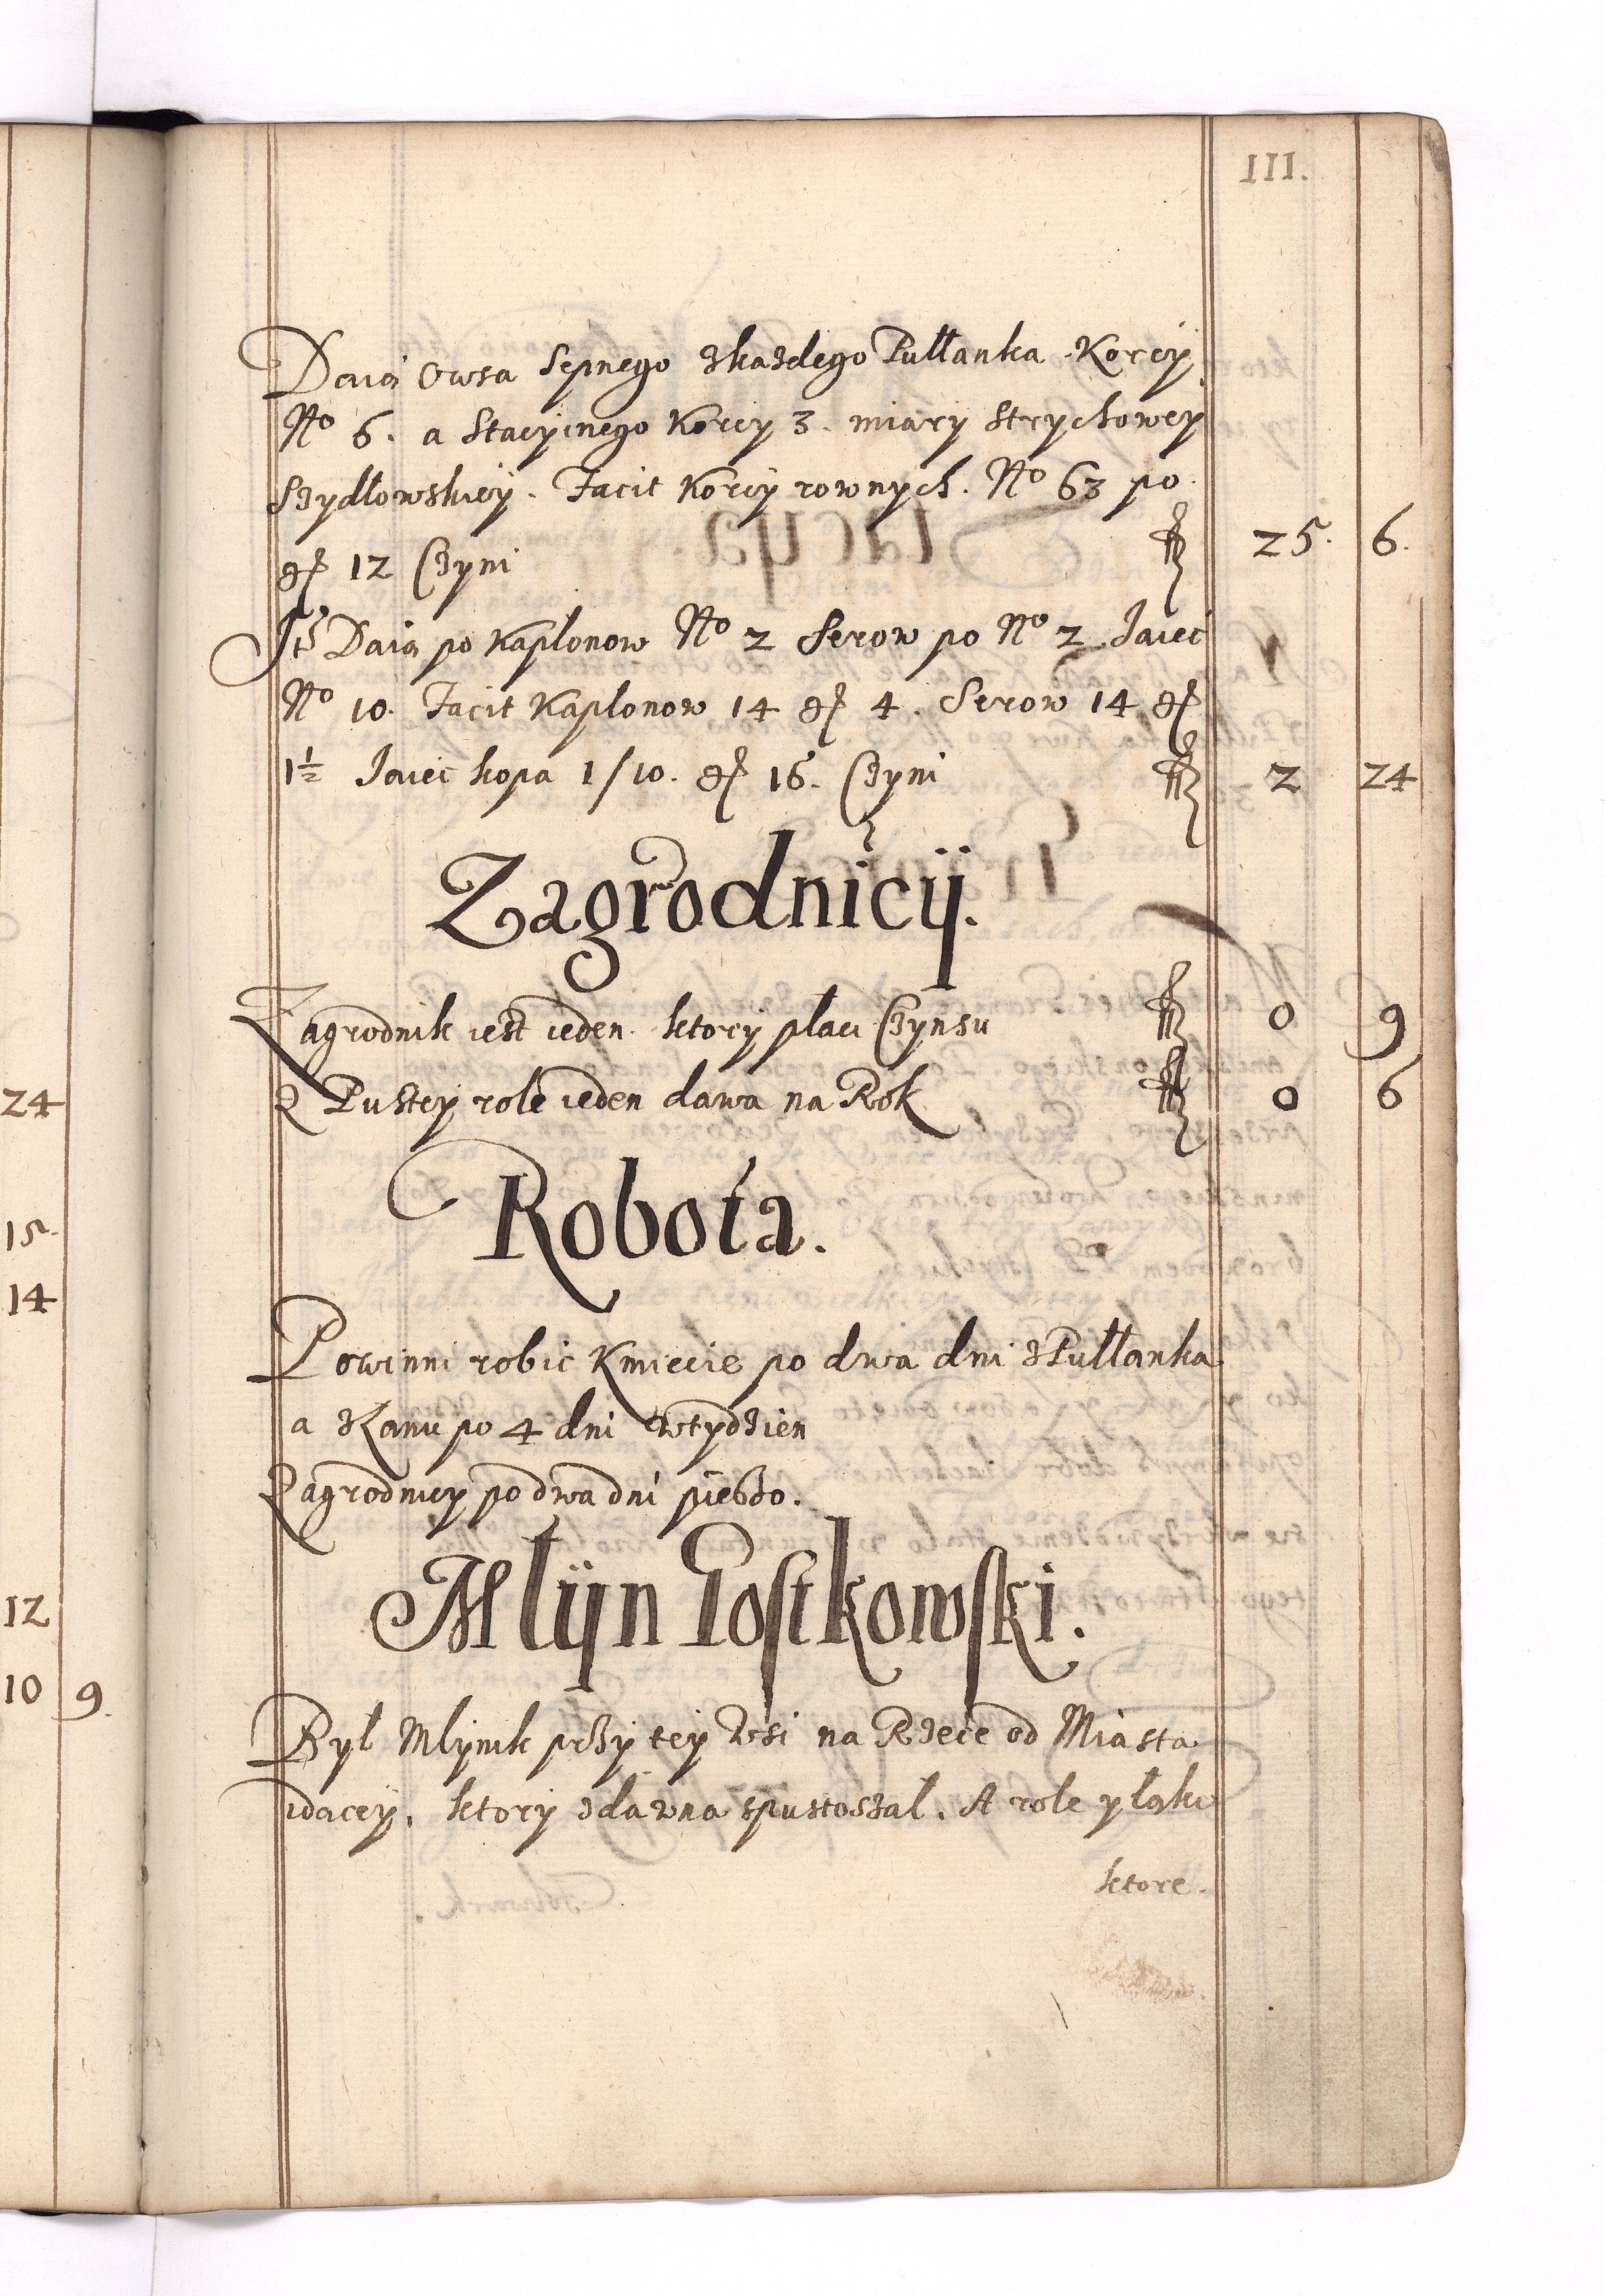 III.
Daią Owsa Sepnego zkazdego Pułłanka Korcy
No 6. a Stacyinego Korcy 3. miary Strychowey
Szydłowskiey. Facit Korcy rownych. No 63 po
gr 12 Czyni fl 25. 6.
Daią po Kapłonow No 2 Serow po No 2 Jaiec
No 10. Facit Kapłonow 14 gr 4. Serow 14 gr
1½ Jaiec kopa 1/10. gr 16. Czyni fl 2 24
Zagrodnicÿ.
Zagrodnik iest ieden ktory płaci Czynsu fl 0 9
Z Pustey role ieden dawa na Rok fl 0 6
Robota.
Powinni robic Kmiecie po dwa dni zPułłanka
a zŁanu po 4 dni wtydzien
Zagrodnicy po dwa dni pieszo.
Młÿn Postkowski.
Był Mlynik przy tey Wsi na Rzece od Miasta
idacey, ktory zdawna spustoszał. A role y łąki
ktore.
24
15.
14
12
10 9.